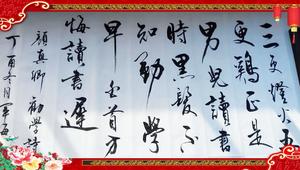 三更燈火五
更鷄正是
男兒讀書
時黑髮不
知勤學
早白首方
悔讀書遲
顏真卿 勸學詩
丁酉冬月